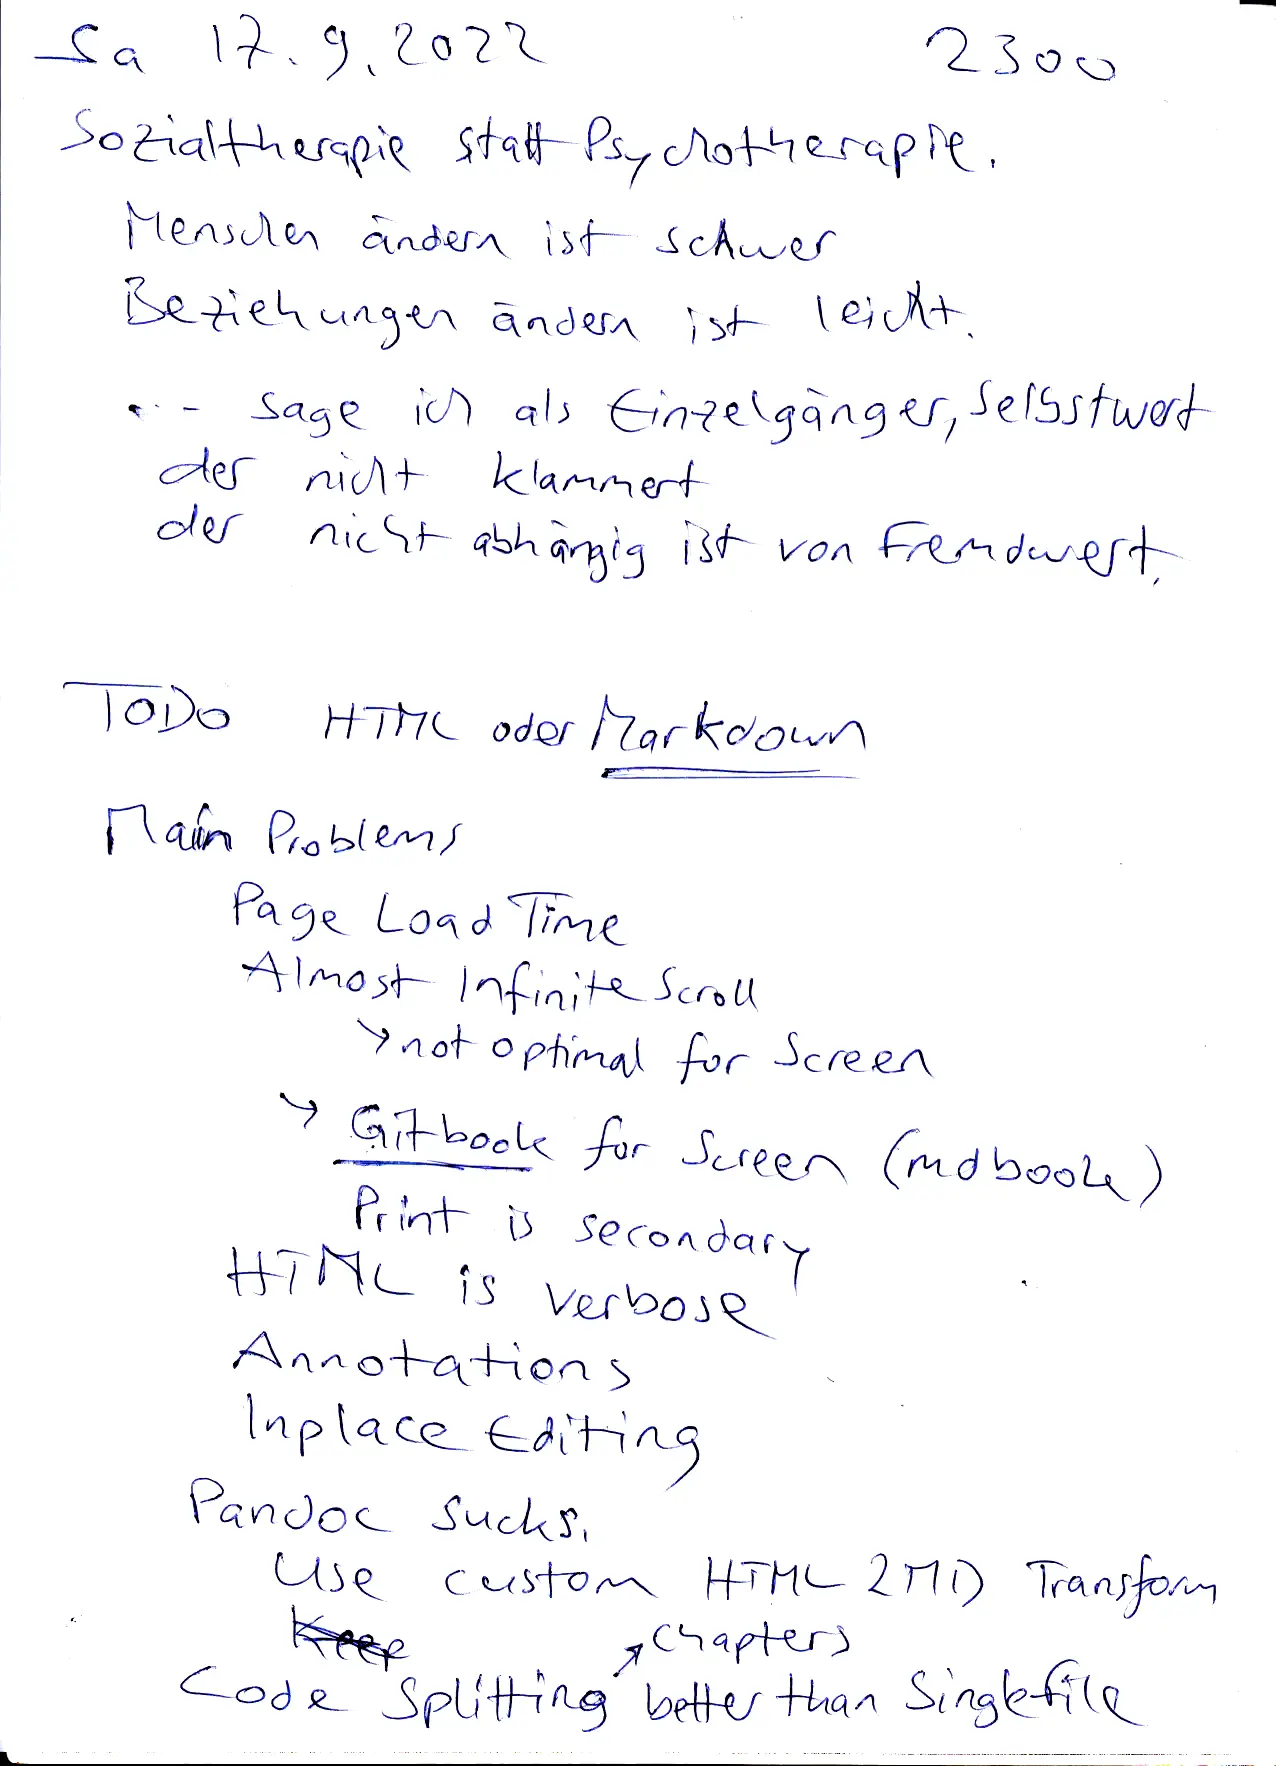 Sa 17.9.2022 2300
Sozialtherapie statt Psychotherapie.
Menschen ändern ist schwer
Beziehungen ändern ist leicht.
... sage ich als Einzelgänger, Selbstwert
der nicht klammert
der nicht abhängig ist von Fremdwert.
TODO HTML oder Markdown
Main Problems
Page Load Time
Almost Infinite Scroll
→ not optimal for Screen
→ Gitbook for Screen (mdbook)
Print is secondary
HTML is verbose
Annotations
Inplace Editing
Pandoc sucks.
Use custom HTML2MD Transform
Keep
↗ Chapters
Code Splitting better than Singlefile